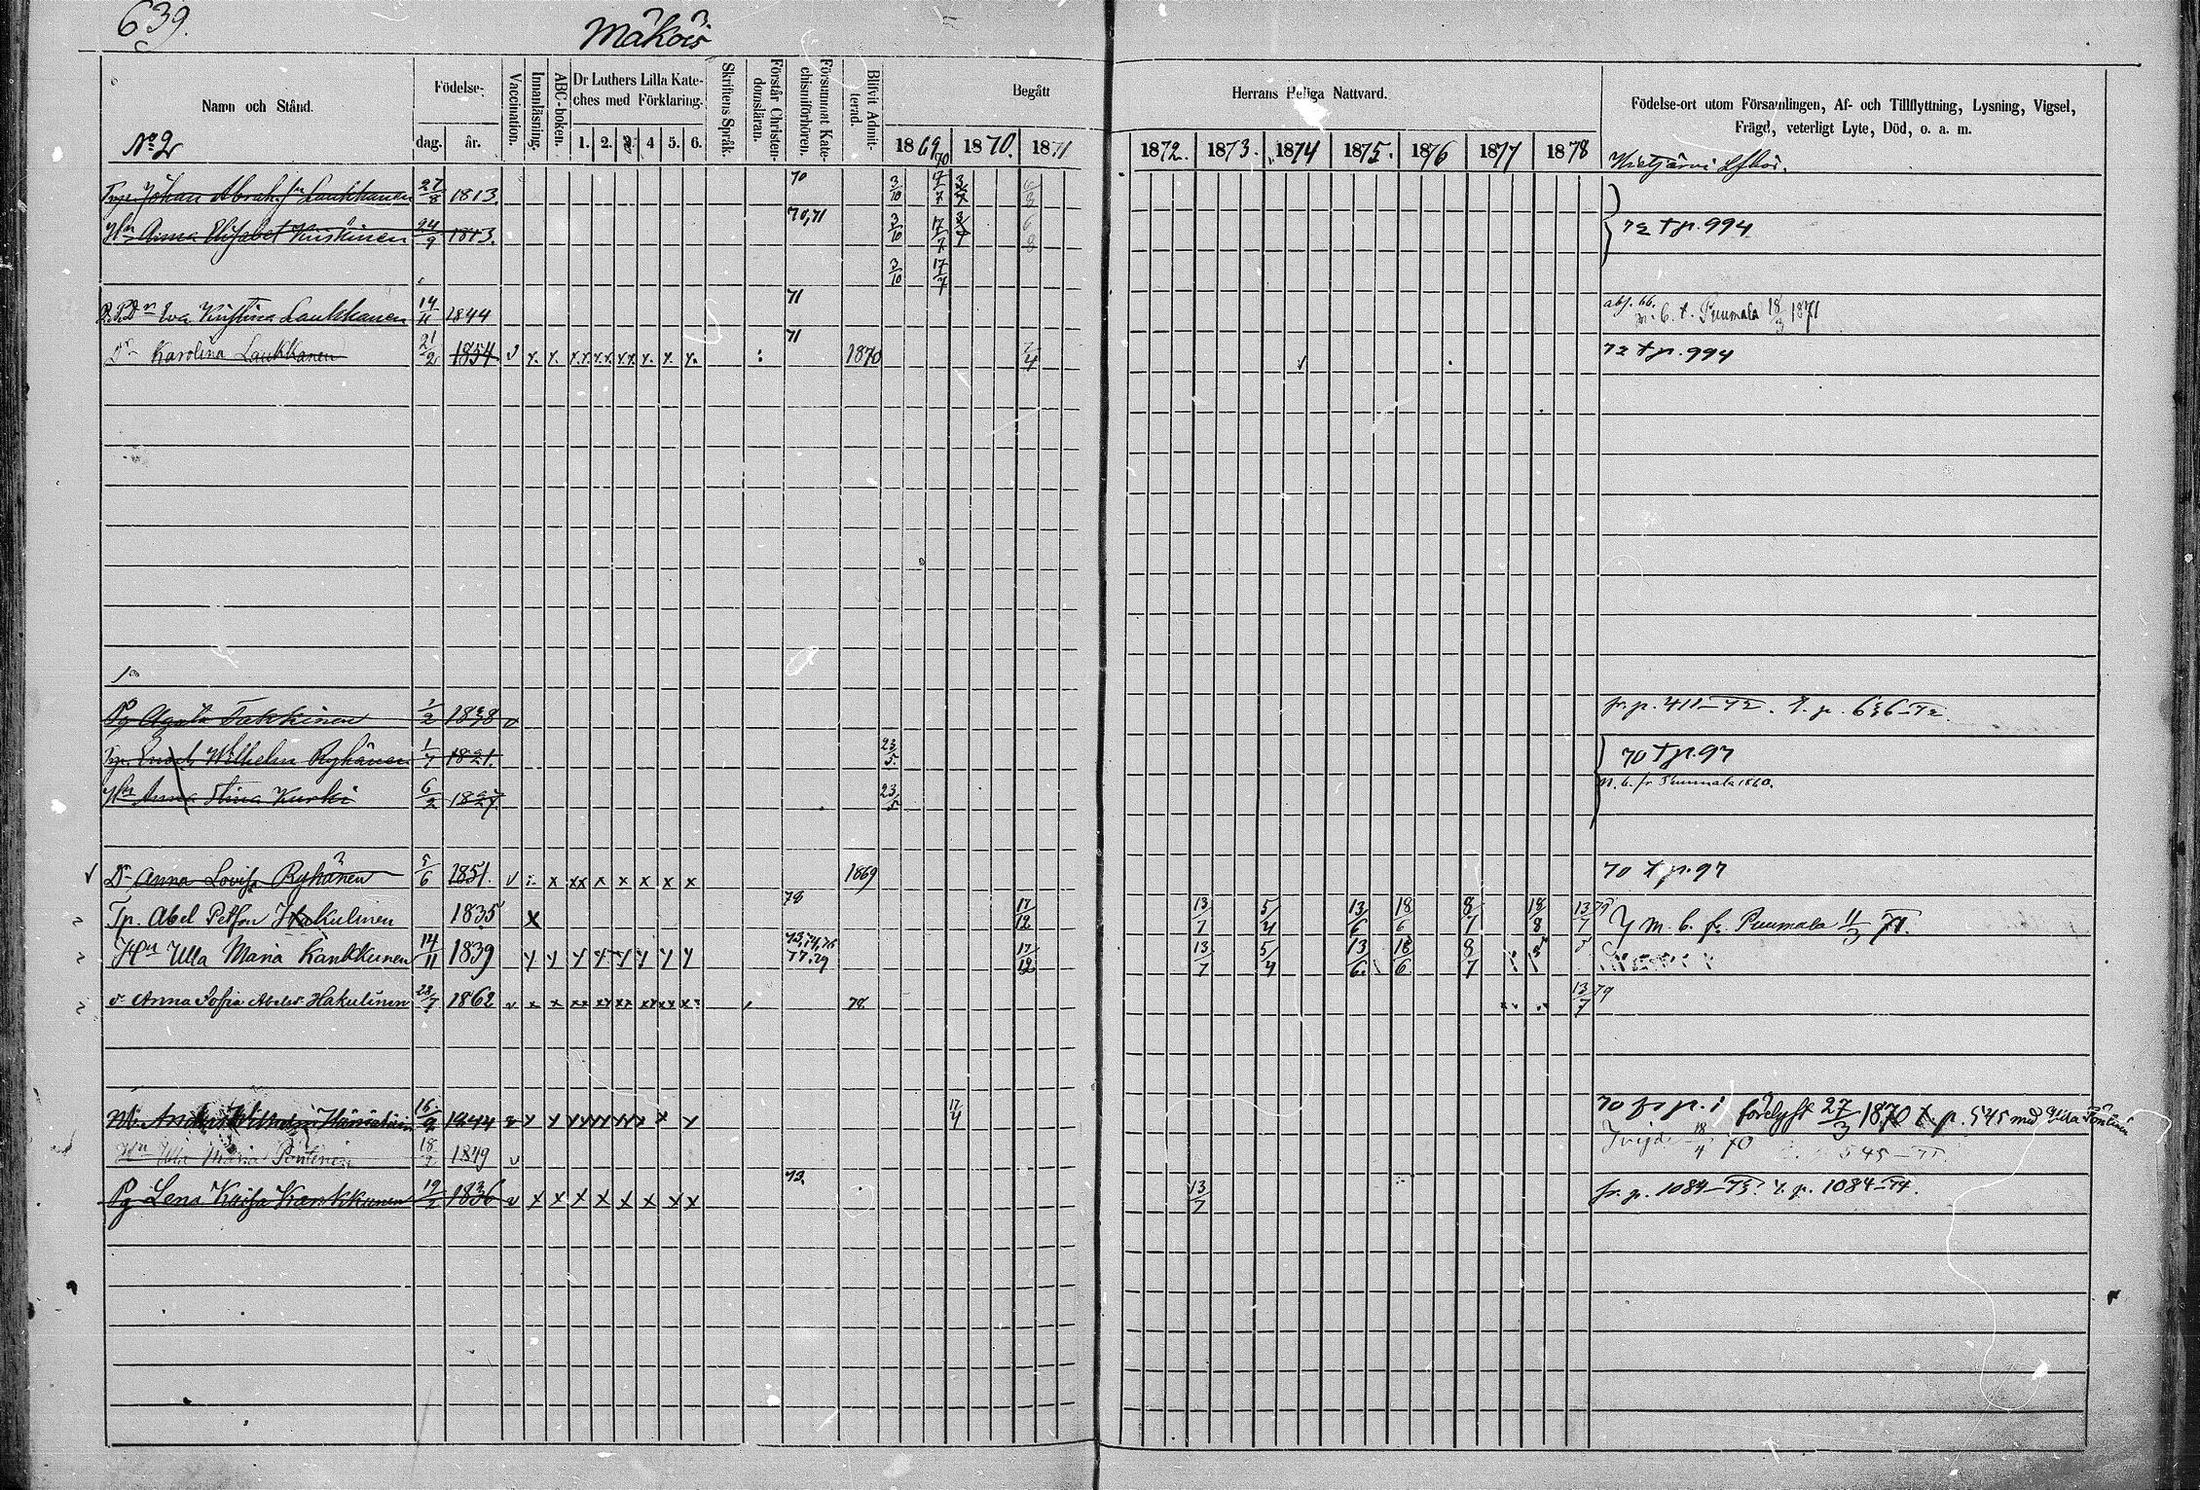 639.
Mäkois
Namn och Stånd.
Födelse-
dag.
år.
Vaccination.
Innanläsning.
ABC-boken.
Dr Luthers Lilla Kate-
ches med Förklaring.
1. 2. 3. 4 5. 6.
Skriftens Språk.
Förstår Christen-
domsläran.
Försummat Kate-
chismiförhören.
Blifvit Admit-
terad.
Begått
1869 70 1870. 1871
Herrans Heliga Nattvard.
1872. 1873. 1874 1875. 1876 1877 1878
Födelse-ort utom Församlingen, Af- och Tillflyttning, Lysning, Vigsel,
Frägd, veterligt Lyte, Död, o. a. m.
No 2
Johan Abrah. Laukkanen 27/8 1813. 70 3/10 3/7 6/8
Hn Anna Elisabet Kuiskinen 24/9 1813. 70,71 3/10 17/7 6/8 72 t p. 994
3/10 17/7
Dn Eva Kristina Laukkanen 14/11 1844 71 m. b. t. Puumala 18/3 1871
Dr Karolina Laukkanen 21/2 1854 v 71 1870 7/4 72 t p. 994
Pg Agata Takkinen 1838 v fr. p. 411-72. t. p. 636-72.
Enoch Wilhelm Ryhänen 1/7 1821. 23/5 70 t p. 97
Hn Anna Stina Kurki 6/2 1827. 23/5 m. b. fr Puumala 1860.
Dr Anna Lovisa Ryhänen 5/6 1851. v x xx x x x x x 1869 70 t p. 97
Tp. Abel Petson Hakulinen 1835 x 78 17/12 13/7 5/4 13/6 18/6 8/7 18/8 13/7 79 m. b. fr. Puumala 11/3 71.
Hn Ulla Maria Kankkunen 14/11 1839 73,74,76 77.79 17/12 13/7 5/4 13/6 18/6 8/7
Anna Sofia Abelsr Hakulinen 28/7 1862 v 78 13/7 79
Wilhelm 16/9 1844 v 17/4 70 fr p. förelyst 27/3 1870 t. p. 545 med Ulla Pöntinen
Hn Ulla Maria Pöntinen 18/9 1849 v 18/4 70 545
Pg Lena Kaisa Kankkunen 19/2 1836 v x x x x x x x x 73. 13/7 fr. p. 1084-73. t. p. 1084-74.